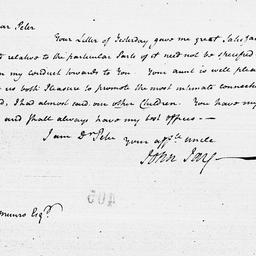 ar Peter
Your Letter of Yesterday gave me great Satisfac
relative to the particular Parts of it need not be specified
my conduct towards to You Your aunt is well please
us both Pleasure to promote the most intimate connecti
I had almost said our other Children. You have my
and shall always have my best offices —
I am Dr Peter
Your affte uncle
John Jay
munro Esqr.
405